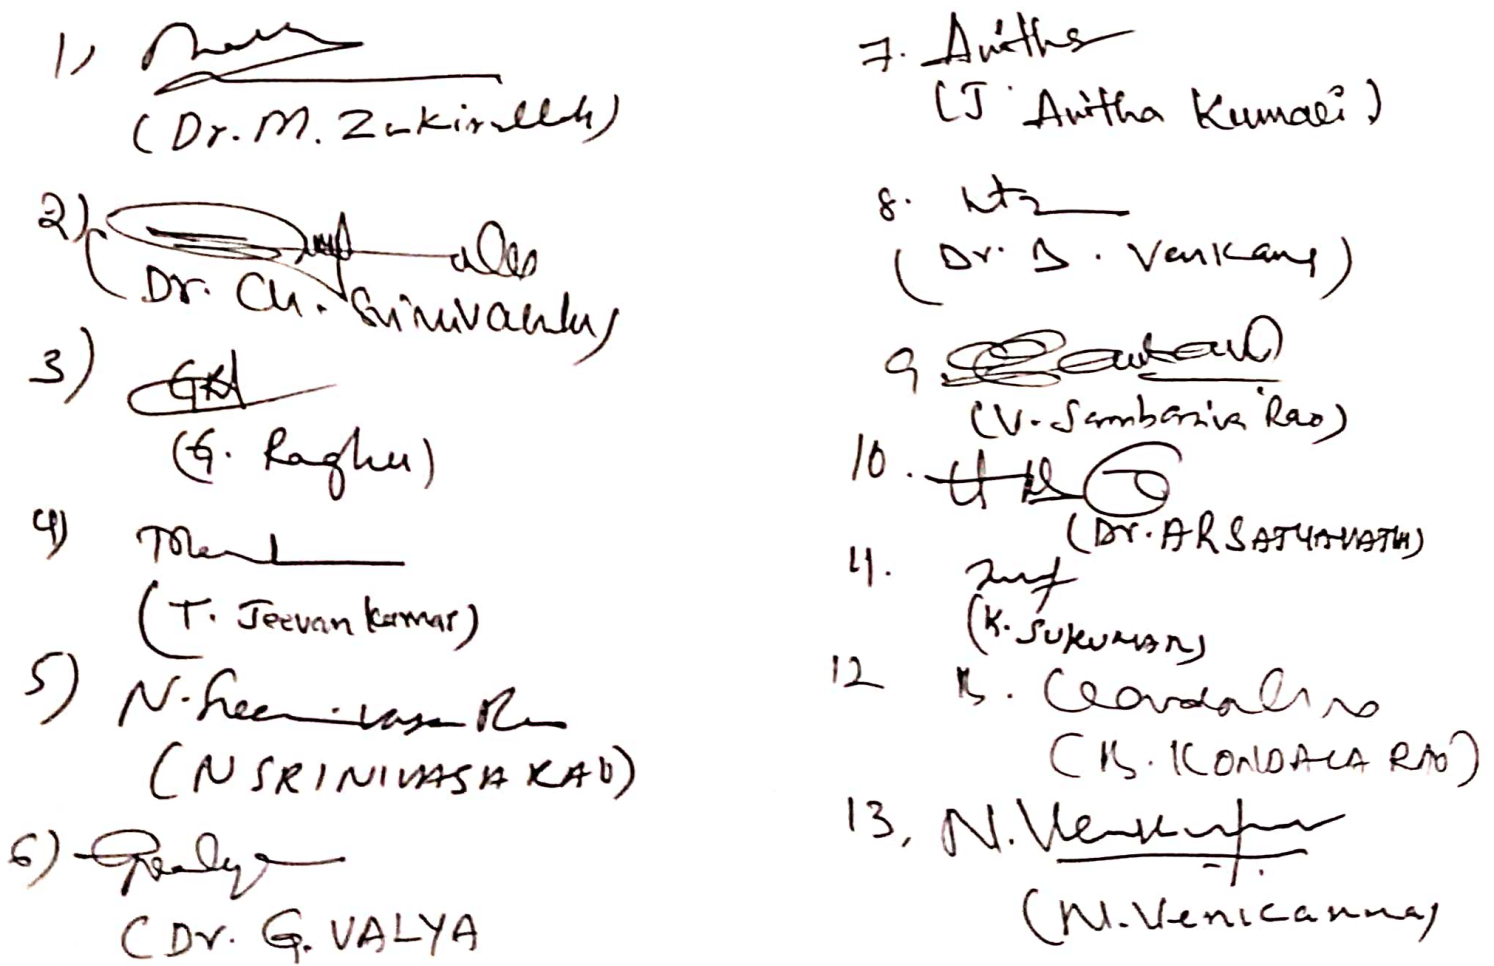 1)
(Dr. M. Zakirullah)
2)
(Dr. Ch. Srinivasulu)
3) GR
(G. Raghu)
4)
(T. Jeevan Kumar)
5) N. Sreenivasa Rao
(N SRINIVASA RAO)
6)
(Dr. G. VALYA
7. Anitha
(J. Anitha Kumari)
8.
(Dr. B. Venkany)
9
(V. Sambasiva Rao)
10.
(Dr. A R SATYAVATHI)
11.
(K. SUKUMAR)
12 B.
(B. KONDALA RAO)
13, N. Venkanna
(N. Venkanna)